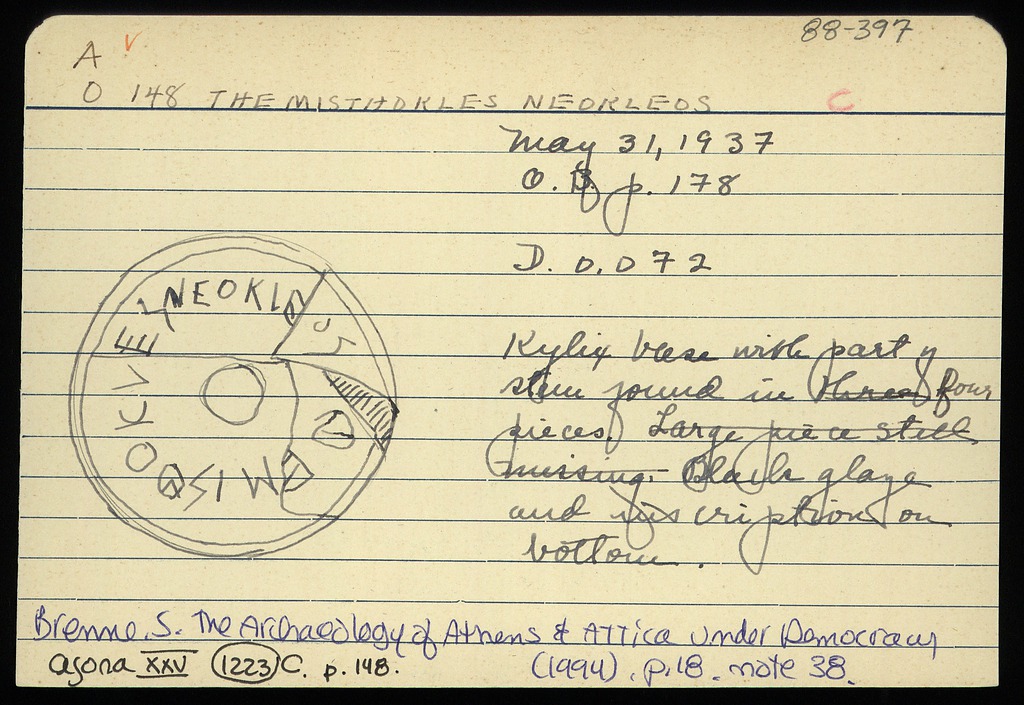 88-397
A v
O 148 THEMISTHOKLES NEOKLEOS C
May 31, 1937
O. B p. 178
D. 0.072
NEOKL
Kylix base with part of
stem found in three four
pieces. Large piece still
missing. Black glaze
and inscription on
bottom.
Brenne, S. The Archaeology of Athens & Attica under Democracy
Agora XXV 1223 C. p. 148. (1994), p.18. note 38.